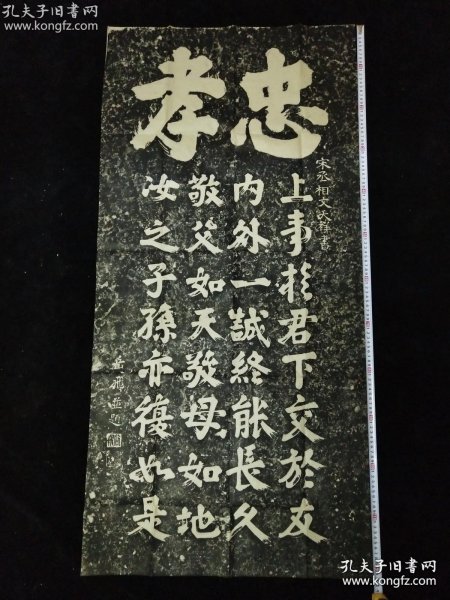 忠孝
宋丞相文天祥書
上事於君下交於友
内外一誠終能長久
敬父如天敬母如地
汝之子孫亦復如是
孔夫子旧书网
www.kongfz.com
孔夫子旧书网
www.kongfz.com
孔夫子旧书网
www.kongfz.com